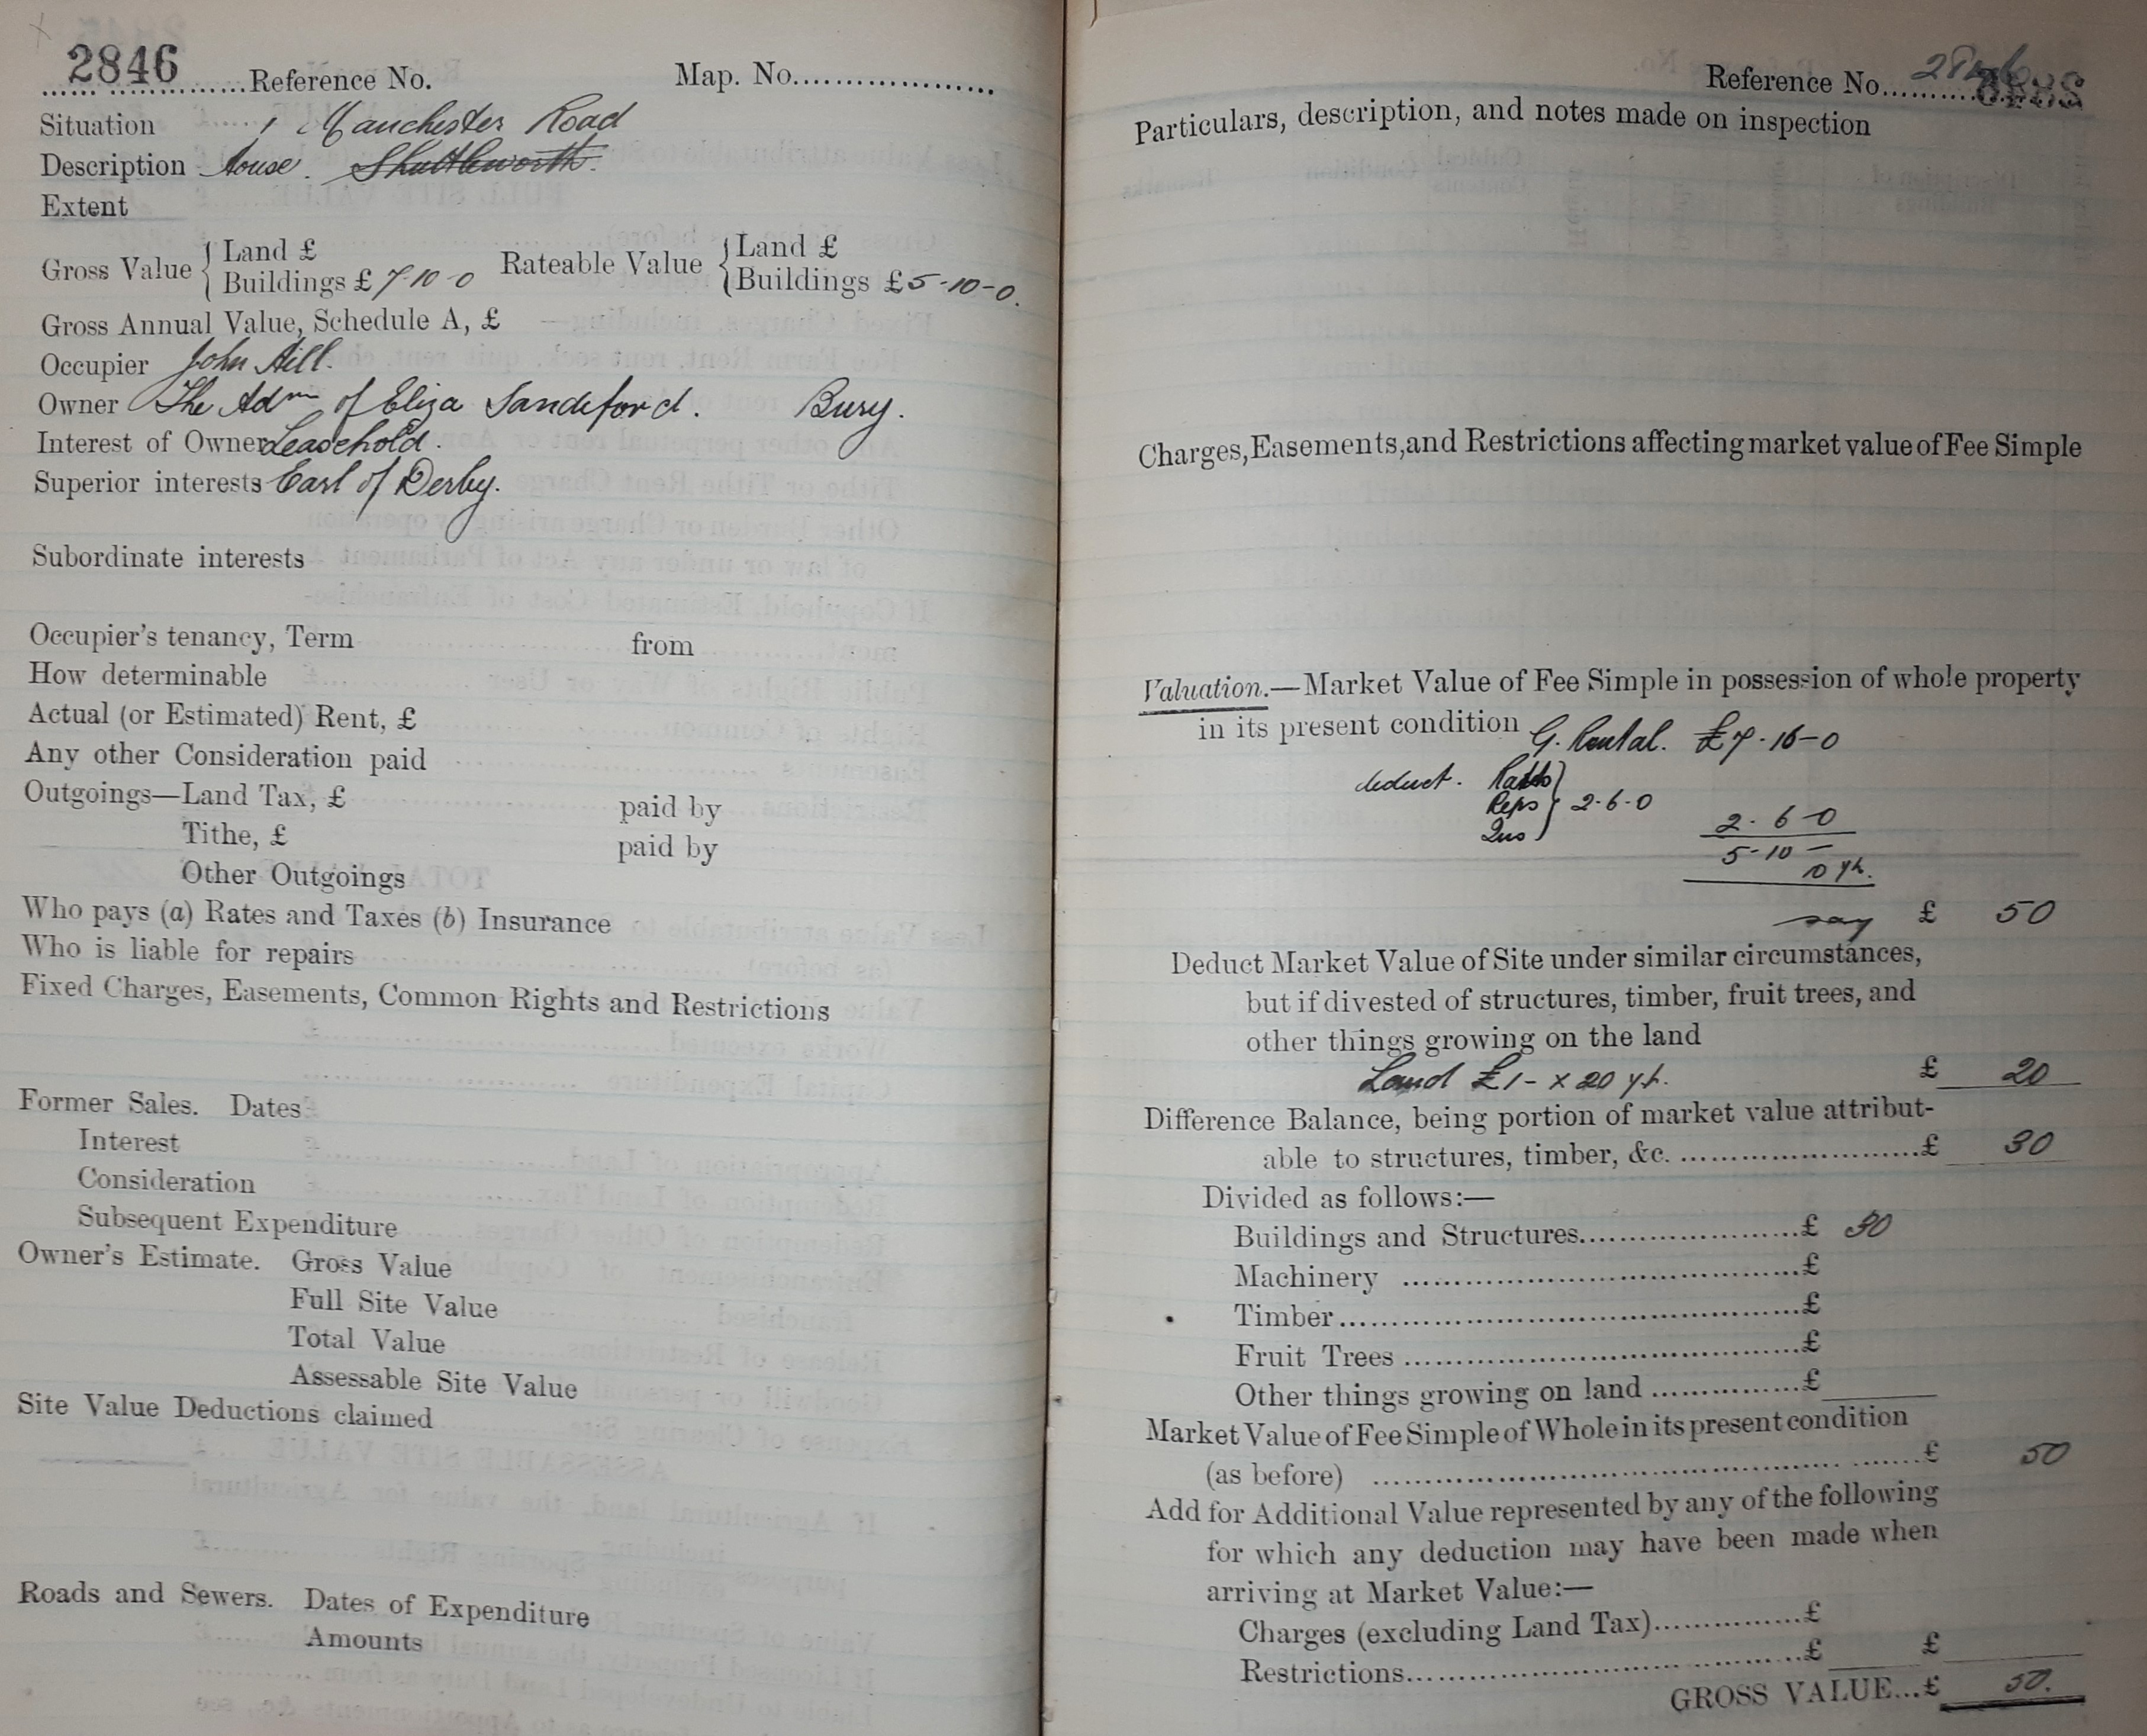 2846 Reference No. Map. No.
Situation 1 Manchester Road
Description House. Shuttleworth.
Extent
Gross Value { Land £
Buildings £ 7-10-0
Rateable Value { Land £
Buildings £5-10-0.
Gross Annual Value, Schedule A, £
Occupier John Hill.
Owner The Adm of Eliza Sandeford. Bury.
Interest of Owner Leasehold.
Superior interests Earl of Derby.
Subordinate interests
Occupier's tenancy, Term from
How determinable
Actual (or Estimated) Rent, £
Any other Consideration paid
Outgoings—Land Tax, £ paid by
Tithe, £ paid by
Other Outgoings
Who pays (a) Rates and Taxes (b) Insurance
Who is liable for repairs
Fixed Charges, Easements, Common Rights and Restrictions
Former Sales. Dates
Interest
Consideration
Subsequent Expenditure
Owner's Estimate. Gross Value
Full Site Value
Total Value
Assessable Site Value
Site Value Deductions claimed
Roads and Sewers. Dates of Expenditure
Amounts
Reference No. 2846
Particulars, description, and notes made on inspection
Charges, Easements, and Restrictions affecting market value of Fee Simple
Valuation.—Market Value of Fee Simple in possession of whole property
in its present condition G. Rental. £7-16-0
deduct.
Reps } 2-6-0
Ins
2-6-0
5-10-
say £ 50
Deduct Market Value of Site under similar circumstances,
but if divested of structures, timber, fruit trees, and
other things growing on the land
Land £1- x 20 yh. £ 20
Difference Balance, being portion of market value attribut-
able to structures, timber, &c. £ 30
Divided as follows:—
Buildings and Structures £ 30
Machinery £
Timber £
Fruit Trees £
Other things growing on land £
Market Value of Fee Simple of Whole in its present condition
(as before) £ 50
Add for Additional Value represented by any of the following
for which any deduction may have been made when
arriving at Market Value:—
Charges (excluding Land Tax) £
Restrictions £ £
GROSS VALUE...£ 50.